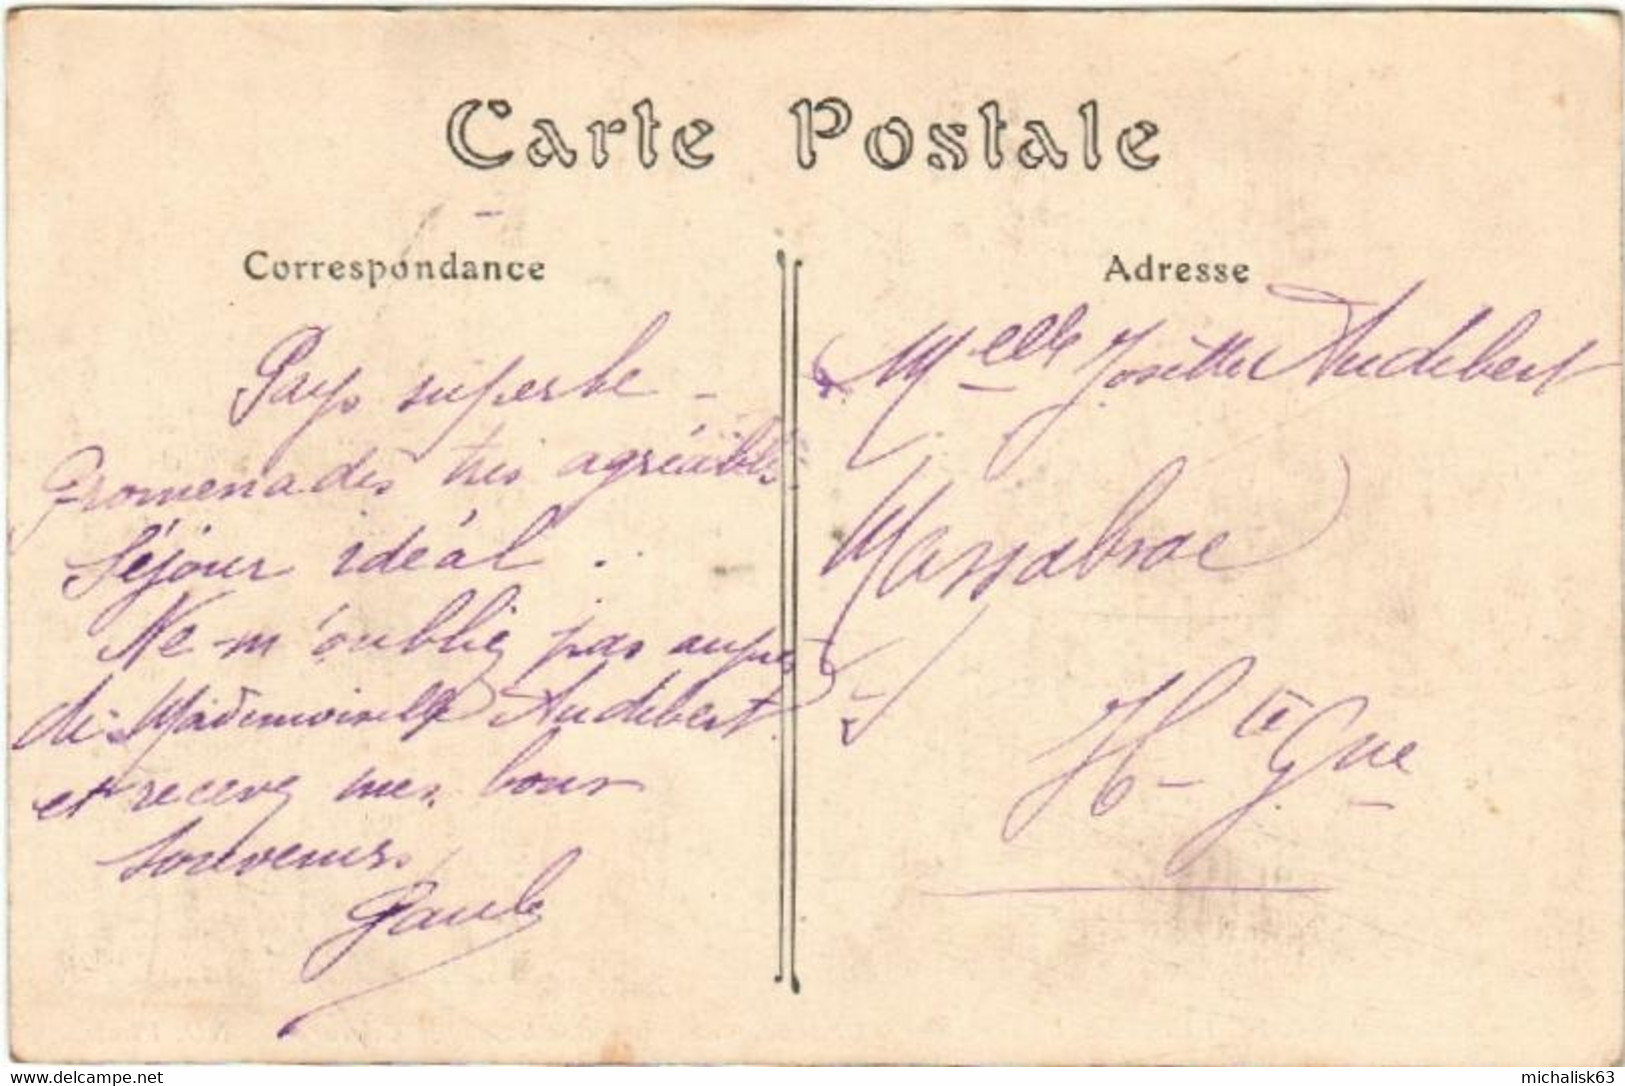 Carte Postale
Correspondance
Pays superbe -
Promenades très agréables
Séjour idéal.
Ne m'oubliez pas auprès
de Mademoiselle Audebert
et recevez mes bons
souvenirs.
Paule
Adresse
Melle Josette Audebert
Massabrac
Hte Gne
www.delcampe.net
michalisk63